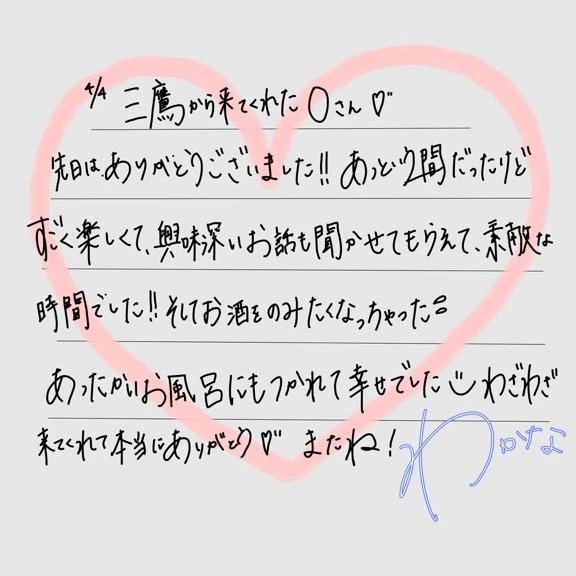 4/4 三鷹から来てくれたOさん♡
先日は、ありがとうございました!! あっという間だったけど
すごく楽しくて、興味深いお話も聞かせてもらえて、素敵な
時間でした!! そしてお酒をのみたくなっちゃった。
あったかいお風呂にもつかれて幸せでした わざわざ
来てくれて本当にありがとう♡ またね!
わかな